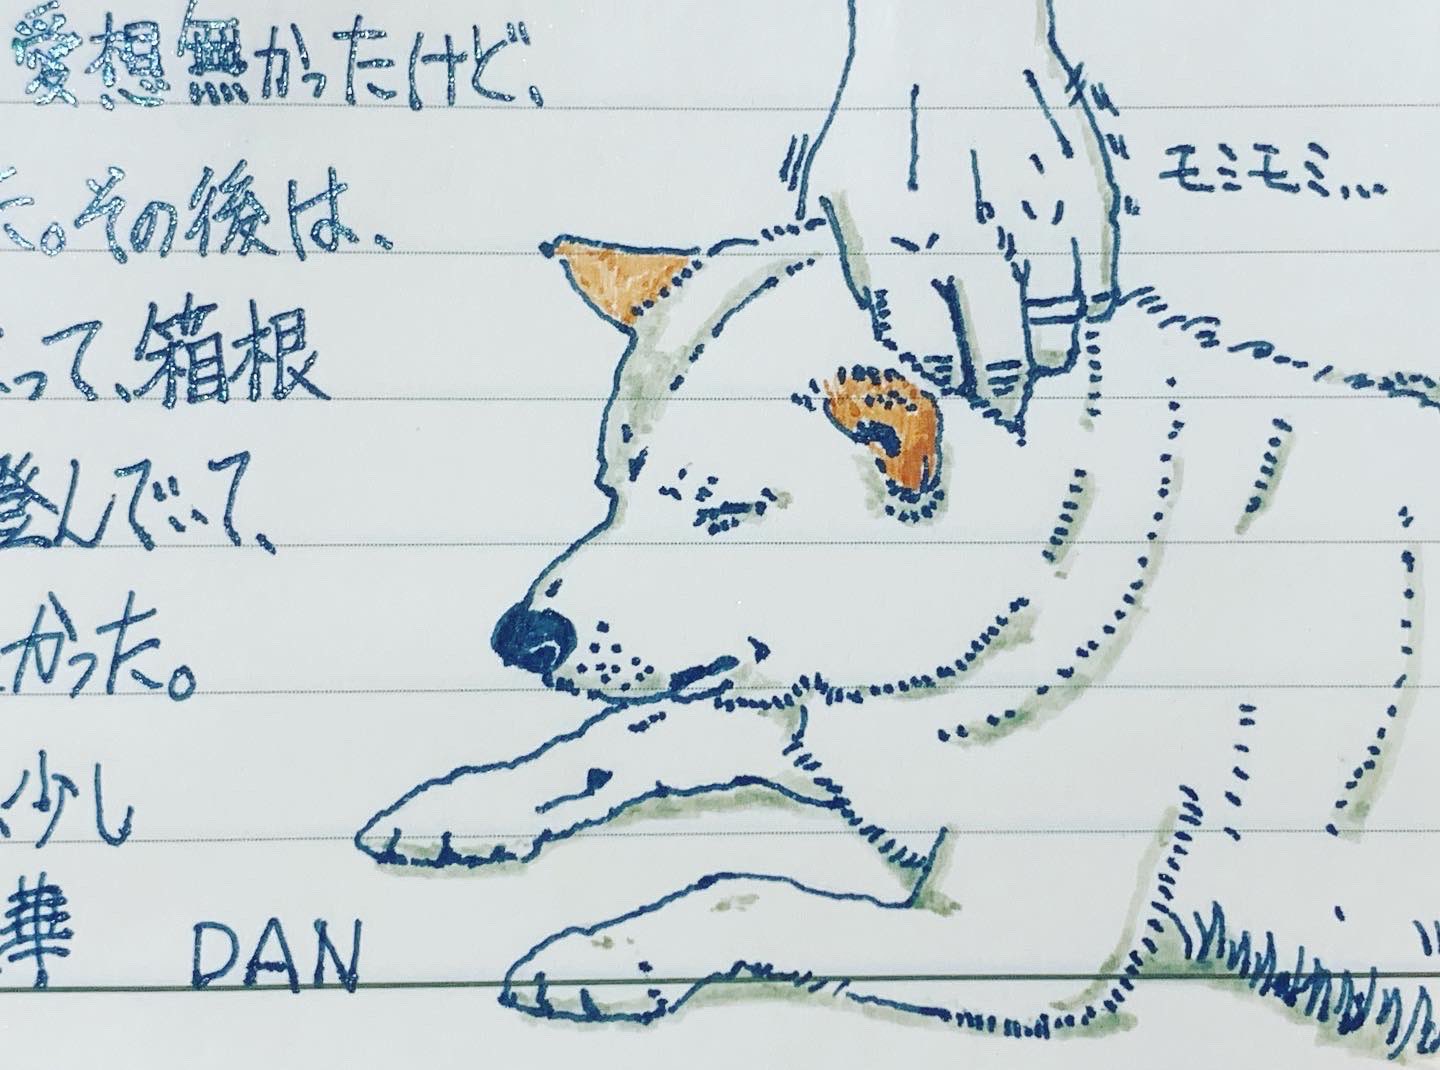 愛想無かったけど、
た。その後は、
って、箱根
登んでいて、
かった。
少し
華 DAN
モミモミ...